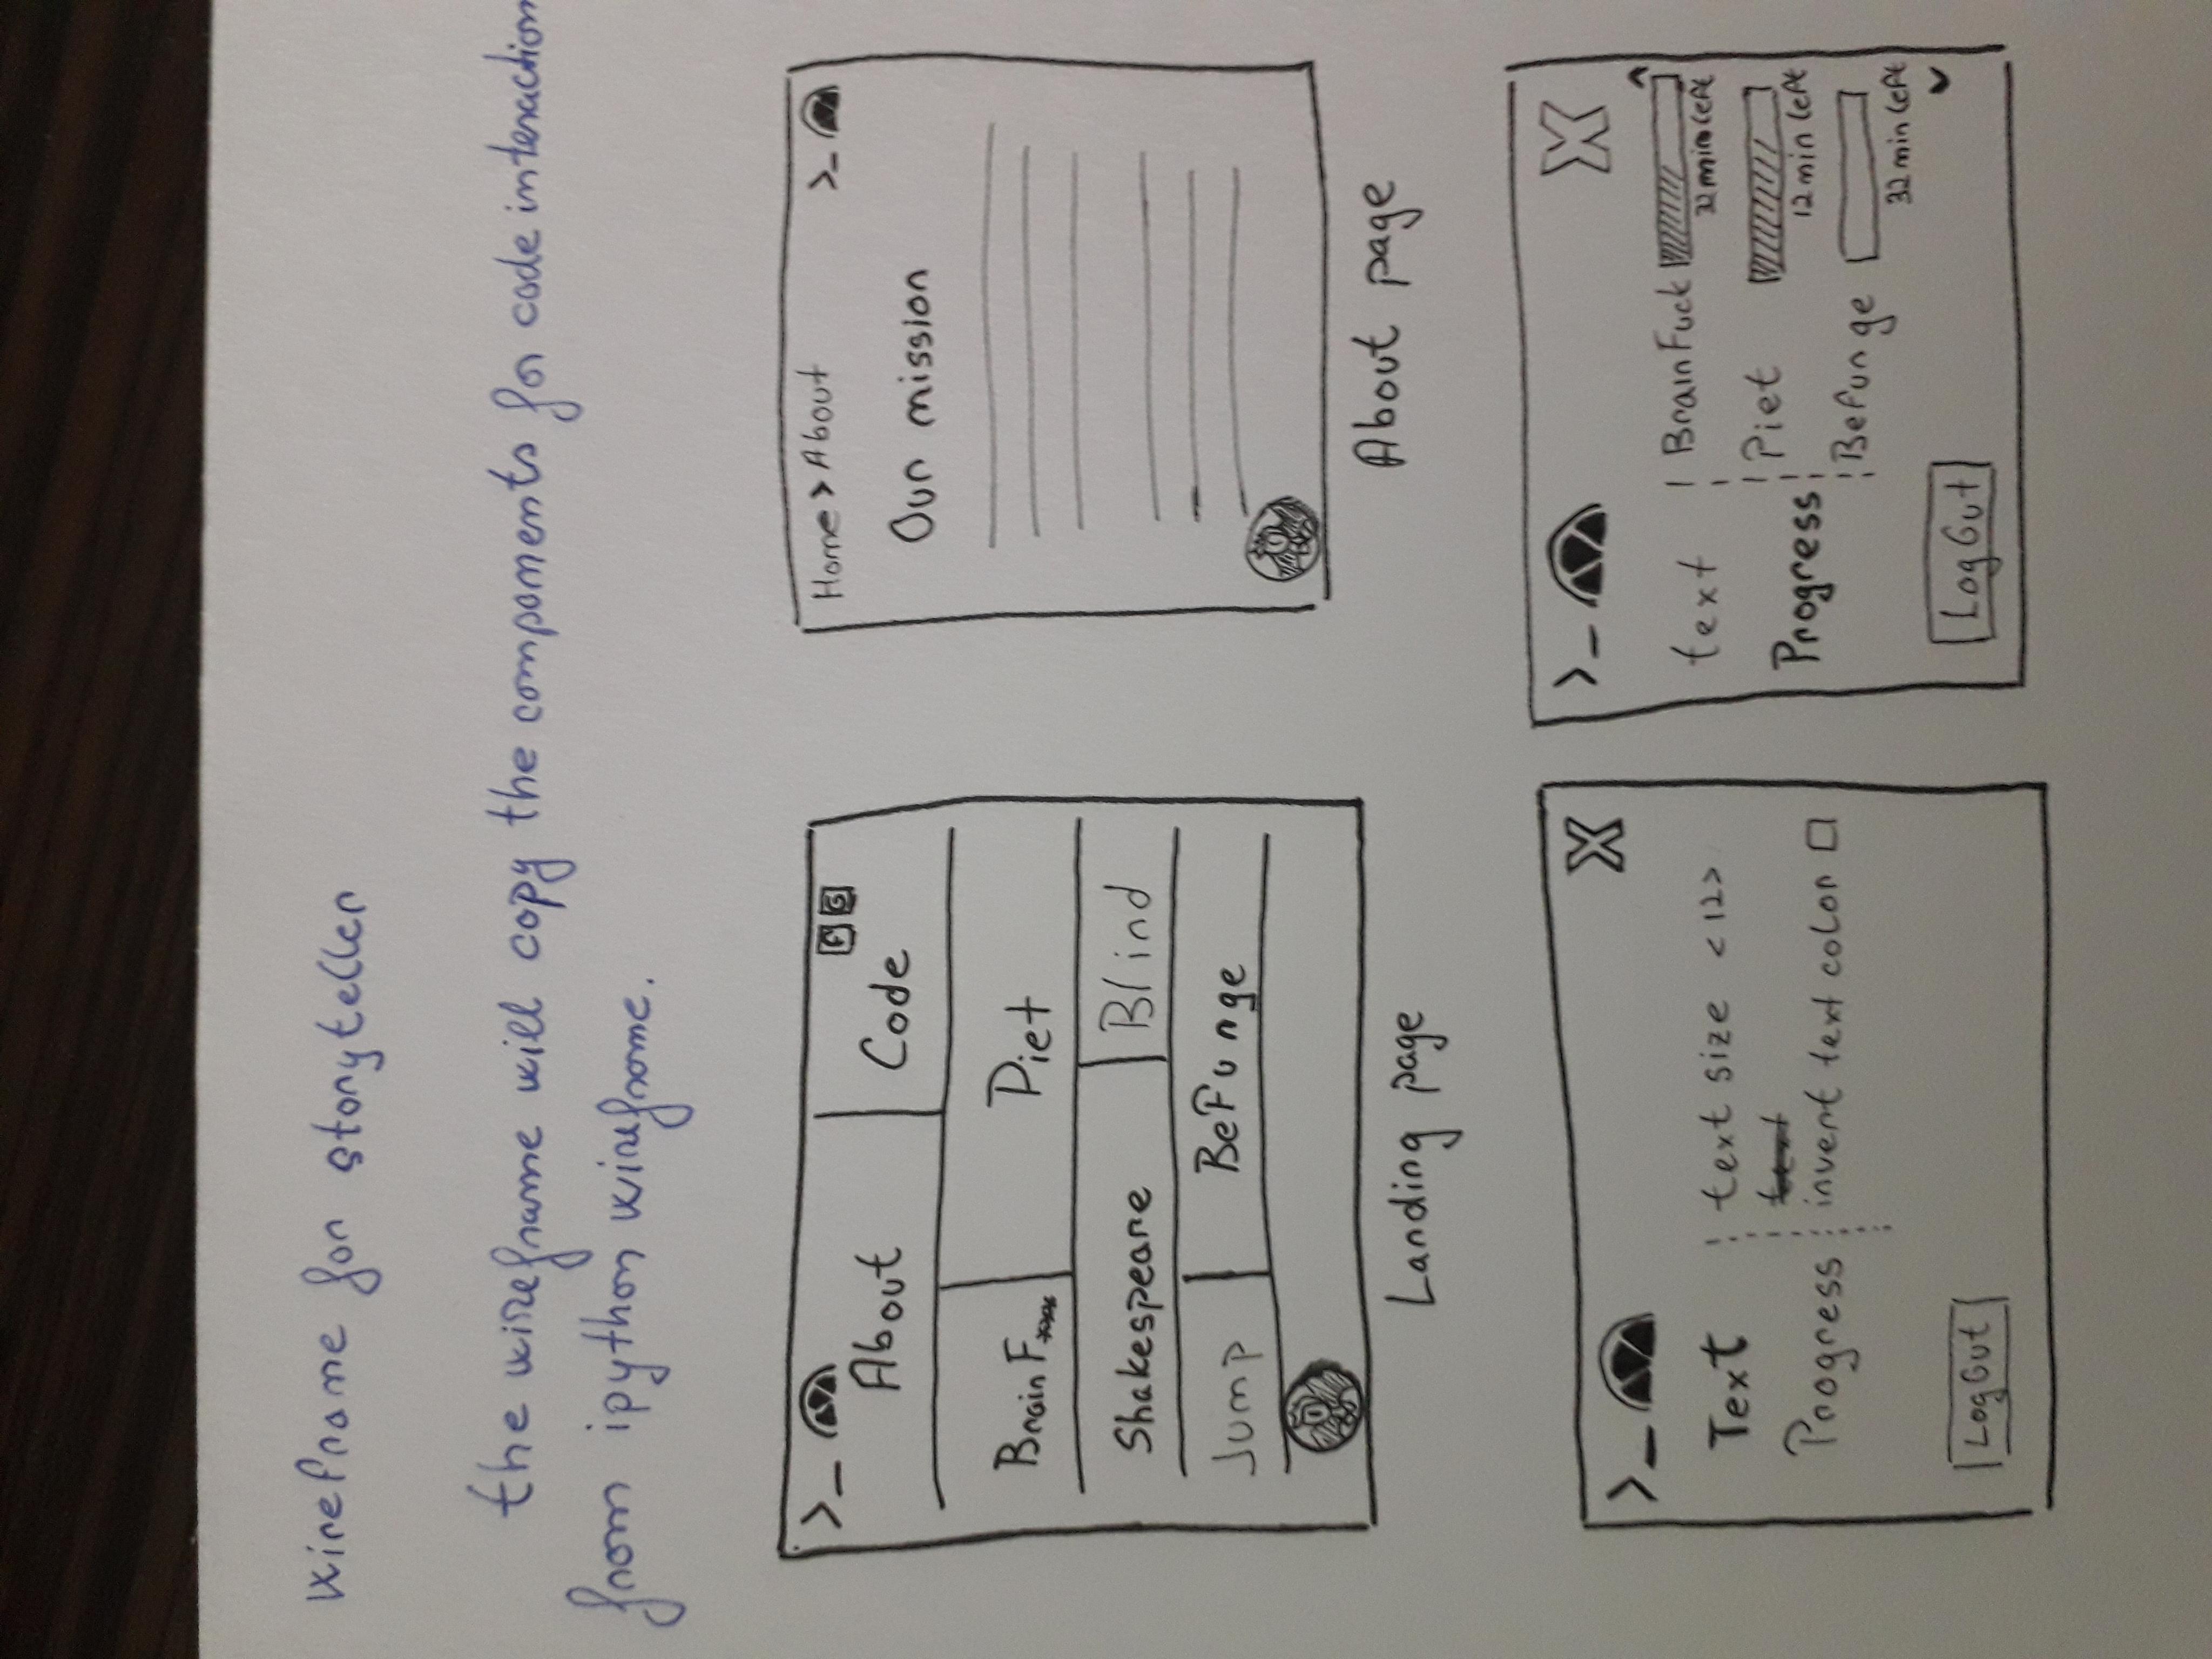 wireframe for storyteller
the wireframe will copy the components for code interaction
from ipython wireframe.
>_
F G
About
Code
BrainF***
Piet
Shakespeare
Blind
Jump
BeFunge
Landing page
Home > About
>_
Our mission
About page
>_
X
Text
text size <12>
Progress
invert text color
LogOut
>_
X
text
BrainFuck
32 min left
Progress
Piet
12 min left
BeFunge
32 min left
LogOut